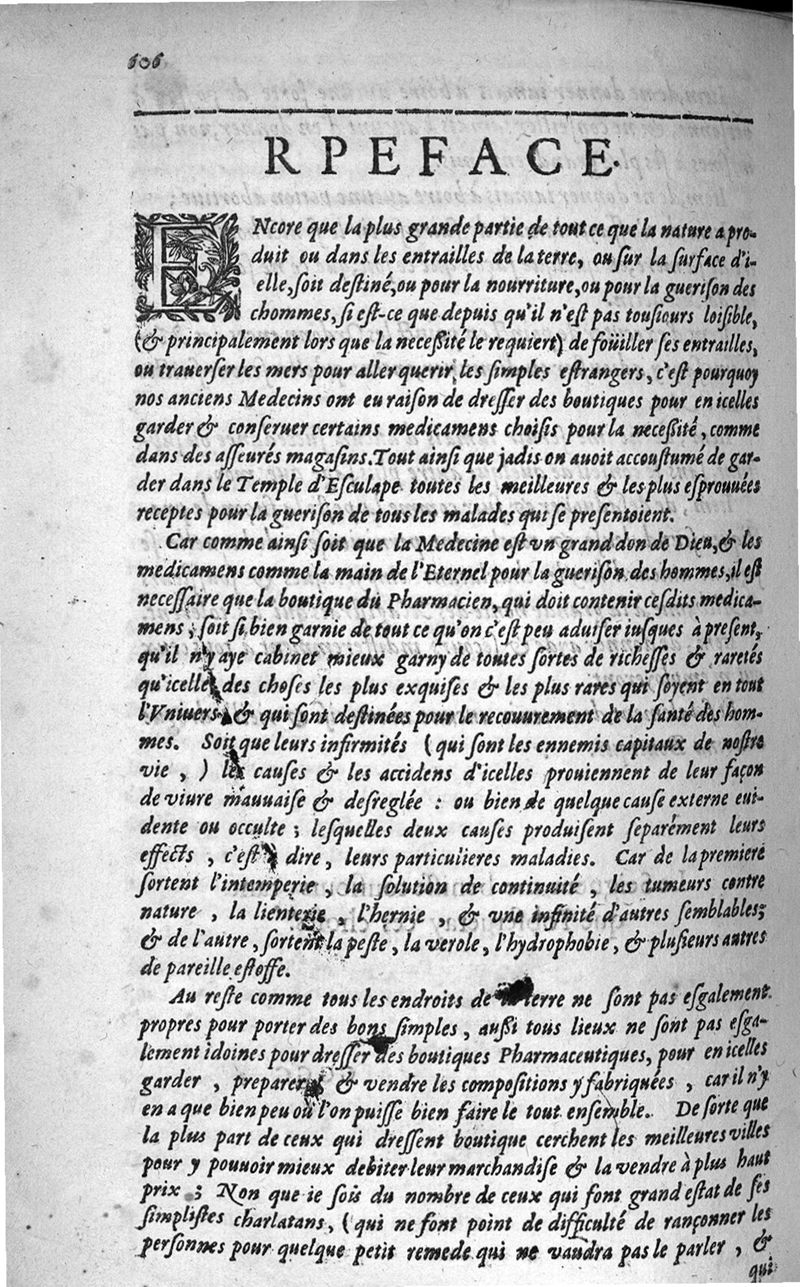 606
RPEFACE.
ENcore que la plus grande partie de tout ce que la nature a pro-
duit ou dans les entrailles de la terre, ou sur la surface d'i-
elle, soit destiné, ou pour la nourriture, ou pour la guerison des
chommes, si est-ce que depuis qu'il n'est pas tousiours loisible,
(& principalement lors que la necessité le requiert) de foüiller ses entrailles,
ou trauerser les mers pour aller querir, les simples estrangers, c'est pourquoy
nos anciens Medecins ont eu raison de dresser des boutiques pour en icelles
garder & conseruer certains medicamens choisis pour la necessité, comme
dans des asseurés magasins. Tout ainsi que jadis on auoit accoustumé de gar-
der dans le Temple d'Esculape toutes les meilleures & les plus esprouuées
receptes pour la guerison de tous les malades qui se presentoient.
Car comme ainsi soit que la Medecine est vn grand don de Dieu, & les
medicamens comme la main de l'Eternel pour la guerison des hommes, il est
necessaire que la boutique du Pharmacien, qui doit contenir cesdits medica-
mens, soit si bien garnie de tout ce qu'on c'est peu aduiser iusques à present,
qu'il n'y aye cabinet mieux garny de toutes sortes de richesses & raretés
qu'icelle des choses les plus exquises & les plus rares qui soyent en tout
l'Vniuers & qui sont destinées pour le recouurement de la santé des hom-
mes. Soit que leurs infirmités (qui sont les ennemis capitaux de nostre
vie, ) les causes & les accidens d'icelles prouiennent de leur façon
de viure mauuaise & desreglée : ou bien de quelque cause externe eui-
dente ou occulte ; lesquelles deux causes produisent separément leurs
effects, c'est à dire, leurs particulieres maladies. Car de la premiere
sortent l'intemperie, la solution de continuité, les tumeurs contre
nature, la lienterie, l'hernie, & vne infinité d'autres semblables;
& de l'autre, sortent la peste, la verole, l'hydrophobie, & plusieurs autres
de pareille estoffe.
Au reste comme tous les endroits de la terre ne sont pas esgalement
propres pour porter des bons simples, aussi tous lieux ne sont pas esga-
lement idoines pour dresser des boutiques Pharmaceutiques, pour en icelles
garder, preparer & vendre les compositions y fabriquées, car il n'y
en a que bien peu où l'on puisse bien faire le tout ensemble. De sorte que
la plus part de ceux qui dressent boutique cerchent les meilleures villes
pour y pouuoir mieux debiter leur marchandise & la vendre à plus haut
prix ; Non que ie sois du nombre de ceux qui font grand estat de ses
simplistes charlatans, (qui ne font point de difficulté de rançonner les
personnes pour quelque petit remede qui ne vaudra pas le parler, &
qui